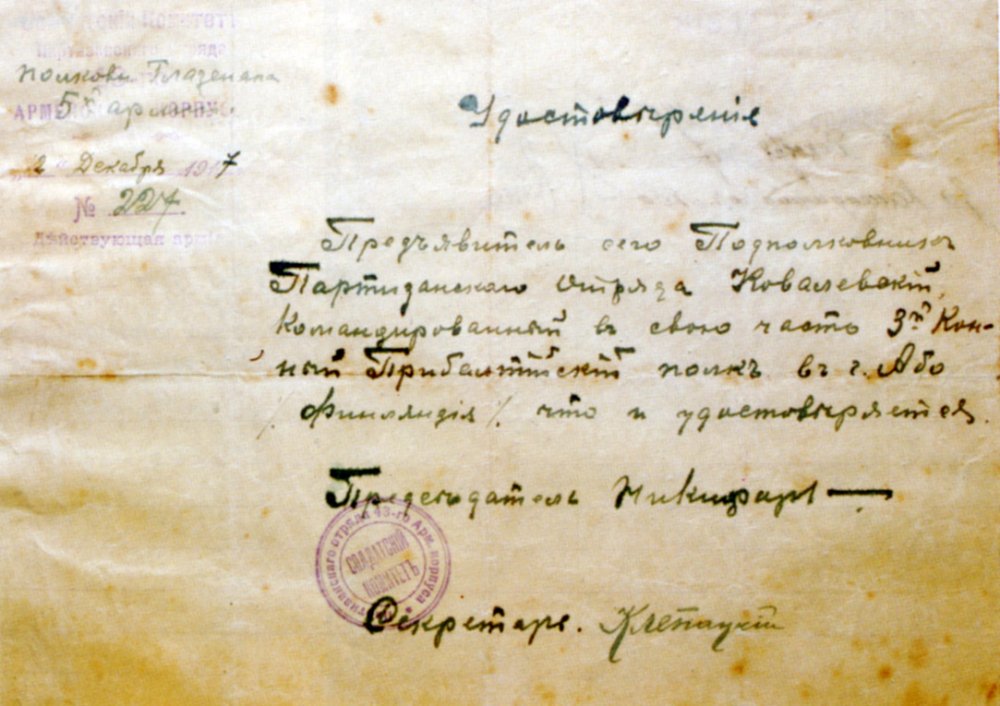 Комитетъ
Полковн. Глазенапа
5й арміи.
„2“ Декабря 1917
№ 227.
Действующая армія
Удостовѣреніе
Предъявитель сего Подполковникъ
Партизанского Отряда Ковалевскій,
командированный въ свою часть 3й Кон-
ный Прибалтійскій полкъ въ г. Або
/Финляндія/. что и удостовѣряется.
Председатель
тизанскаго отряда 43-го Арм. корпуса
СОЛДАТСКІЙ
КОМИТЕТЪ
Секретарь. Клепацкій